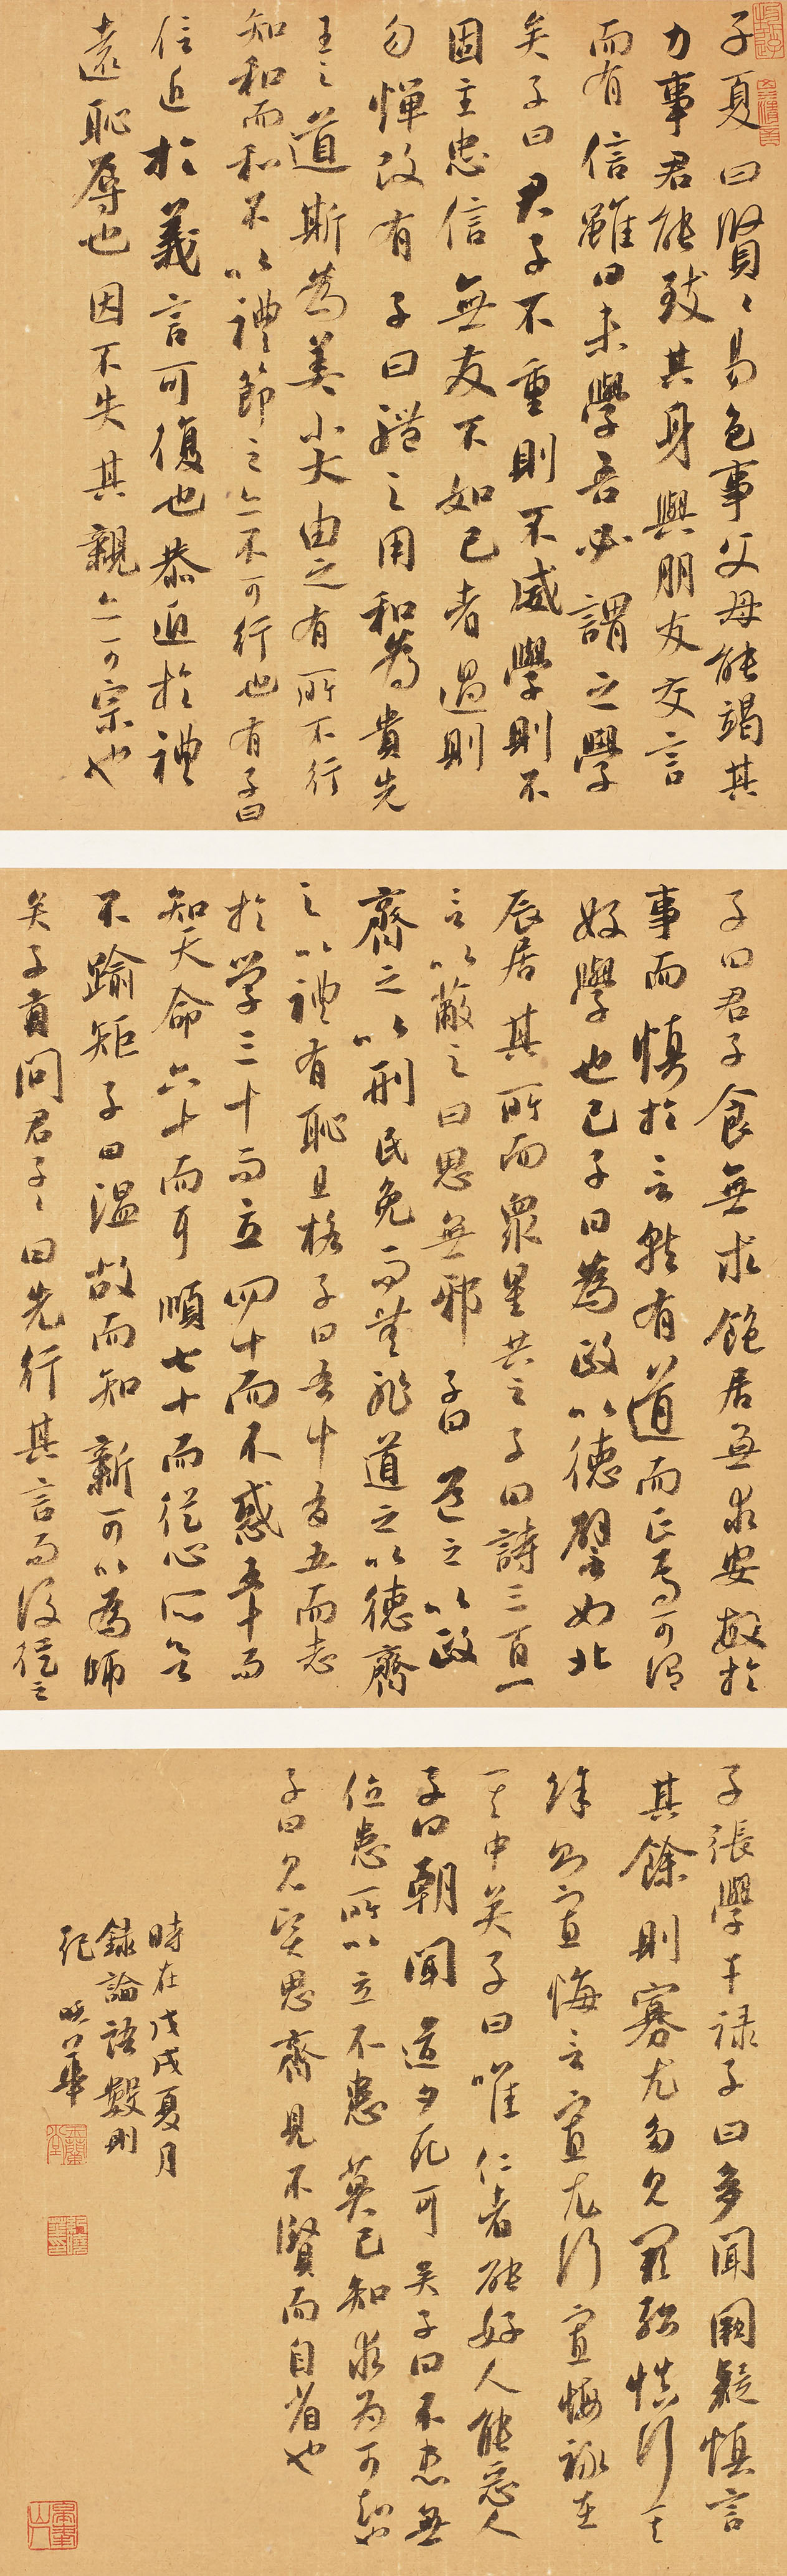 子夏曰賢〻易色事父母能竭其
力事君能致其身與朋友交言
而有信雖曰未學吾必謂之學
矣子曰君子不重則不威學則不
固主忠信無友不如己者過則
勿憚改有子曰禮之用和為貴先
王之道斯為美小大由之有所不行
知和而和不以禮節之亦不可行也有子曰
信近於義言可復也恭近於禮
遠恥辱也因不失其親亦可宗也
子曰君子食無求飽居無求安敏於
事而慎於言就有道而正焉可謂
好學也已子曰為政以德譬如北
辰居其所而衆星共之子曰詩三百一
言以蔽之曰思無邪子曰道之以政
齊之以刑民免而無恥道之以德齊
之以禮有恥且格子曰吾十有五而志
於学三十而立四十而不惑五十而
知天命六十而耳順七十而從心所欲
不踰矩子曰溫故而知新可以為師
矣子貢問君子〻曰先行其言而後從之
子張學干祿子曰多聞闕疑慎言
其餘則寡尤多見闕殆慎行其
餘則寡悔言寡尤行寡悔祿在
其中矣子曰唯仁者能好人能惡人
子曰朝聞道夕死可矣子曰不患無
位患所以立不患莫己知求為可知也
子曰見賢思齊見不賢而自省也
時在戊戌夏月
錄論語數則
紀曉華